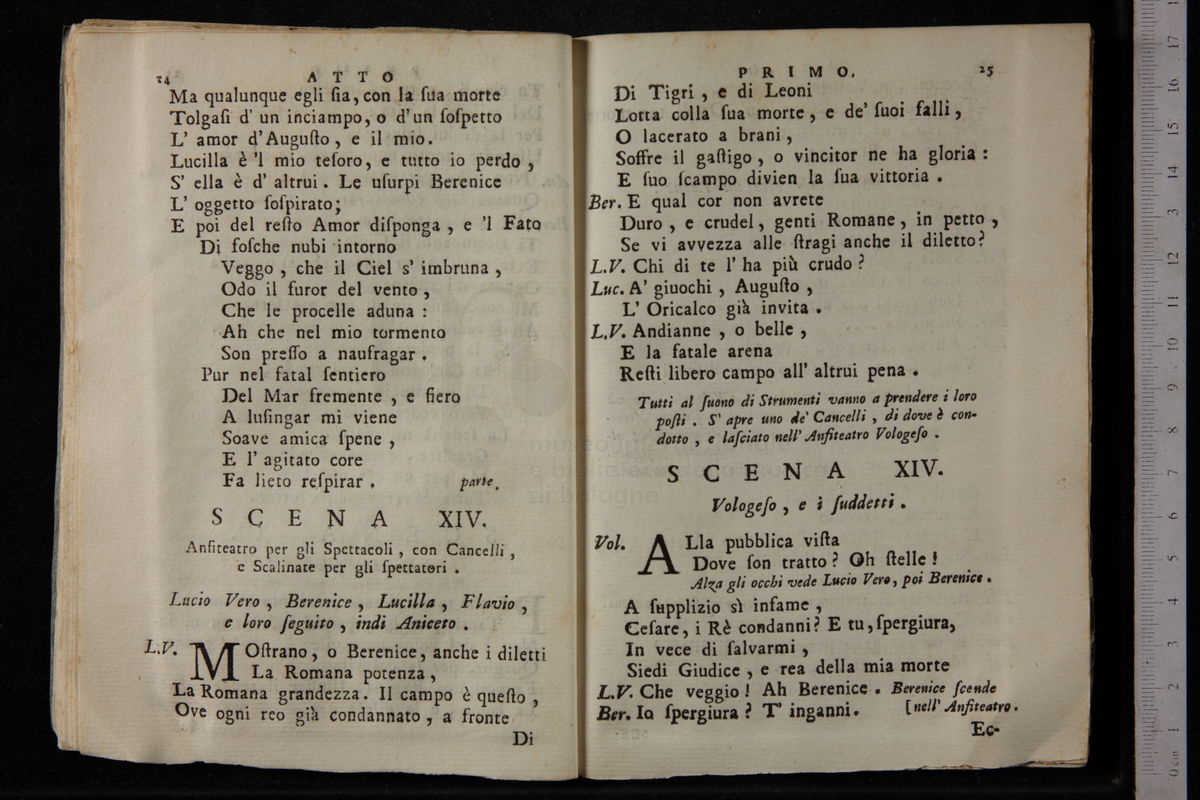 24 ATTO
Ma qualunque egli ſia, con la ſua morte
Tolgaſi d' un inciampo, o d' un ſoſpetto
L' amor d' Auguſto, e il mio.
Lucilla è 'l mio teſoro, e tutto io perdo,
S' ella è d' altrui. Le uſurpi Berenice
L' oggetto ſoſpirato;
E poi del reſto Amor diſponga, e 'l Fato
Di foſche nubi intorno
Veggo, che il Ciel s' imbruna,
Odo il furor del vento,
Che le procelle aduna:
Ah che nel mio tormento
Son preſſo a naufragar.
Pur nel fatal ſentiero
Del Mar fremente, e fiero
A luſingar mi viene
Soave amica ſpene,
E l' agitato core
Fa lieto reſpirar. parte.
SCENA XIV.
Anfiteatro per gli Spettacoli, con Cancelli,
e Scalinate per gli ſpettatori.
Lucio Vero, Berenice, Lucilla, Flavio,
e loro ſeguito, indi Aniceto.
L.V. MOſtrano, o Berenice, anche i diletti
La Romana potenza,
La Romana grandezza. Il campo è queſto,
Ove ogni reo già condannato, a fronte
Di
PRIMO. 25
Di Tigri, e di Leoni
Lotta colla ſua morte, e de' ſuoi falli,
O lacerato a brani,
Soffre il gaſtigo, o vincitor ne ha gloria:
E ſuo ſcampo divien la ſua vittoria.
Ber. E qual cor non avrete
Duro, e crudel, genti Romane, in petto,
Se vi avvezza alle ſtragi anche il diletto?
L.V. Chi di te l' ha più crudo?
Luc. A' giuochi, Auguſto,
L' Oricalco già invita.
L.V. Andianne, o belle,
E la fatale arena
Reſti libero campo all' altrui pena.
Tutti al ſuono di Strumenti vanno a prendere i loro
poſti. S' apre uno de' Cancelli, di dove è con-
dotto, e laſciato nell' Anfiteatro Vologeſo.
SCENA XIV.
Vologeſo, e i ſuddetti.
Vol. ALla pubblica viſta
Dove ſon tratto? Oh ſtelle!
Alza gli occhi vede Lucio Vero, poi Berenice.
A ſupplizio sì infame,
Ceſare, i Rè condanni? E tu, ſpergiura,
In vece di ſalvarmi,
Siedi Giudice, e rea della mia morte
L.V. Che veggio! Ah Berenice. Berenice ſcende
Ber. Io ſpergiura? T' inganni. [nell' Anfiteatro.
Ec-